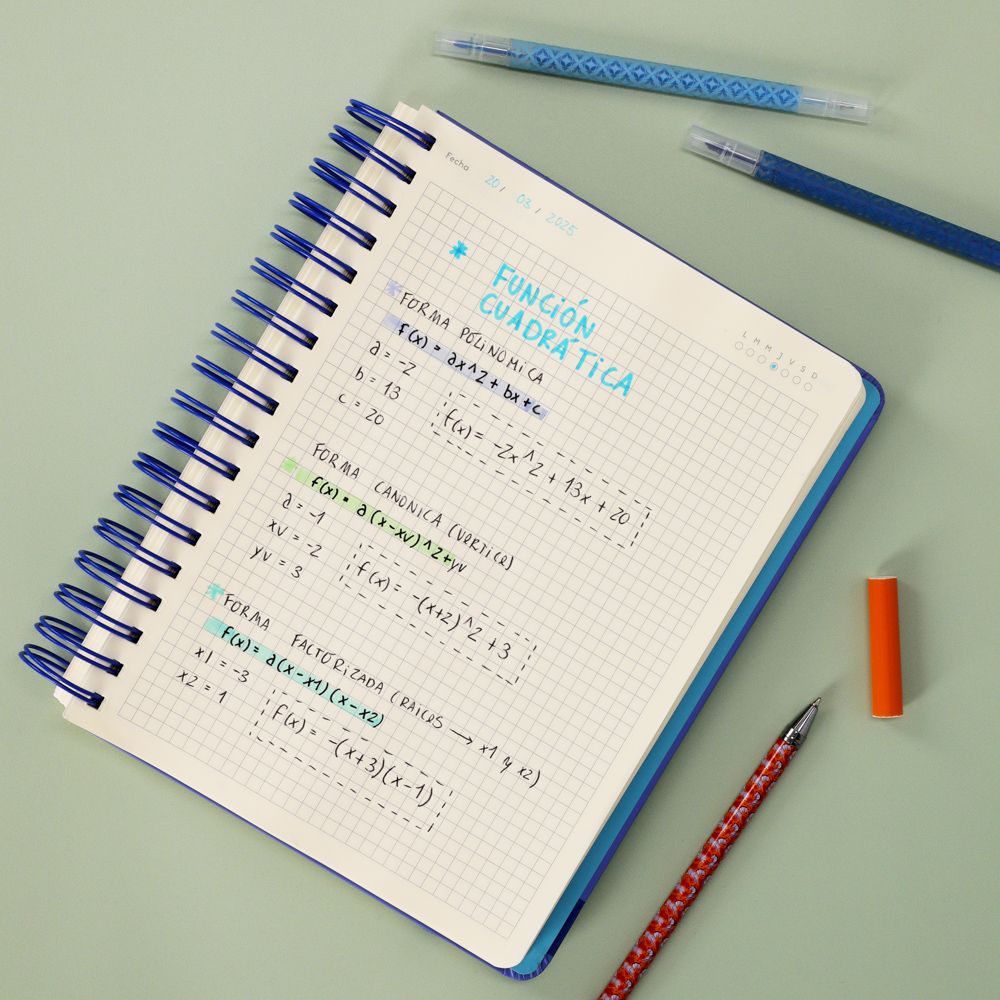 Fecha 20/ 03/ 2025
L M M J V S D
* FUNCIÓN
CUADRÁTICA
* FORMA POLINOMICA
f(x) = ax^2 + bx+c
a = -2
b = 13
c = 20
f(x) = -2x^2 + 13x + 20
* FORMA CANONICA (VERTICE)
f(x) = a(x-xv)^2+yv
a = -1
xv = -2
yv = 3
f(x) = -(x+2)^2 +3
* FORMA FACTORIZADA (RAICES → x1 y x2)
f(x) = a(x-x1)(x-x2)
x1 = -3
x2 = 1
f(x) = -(x+3)(x-1)